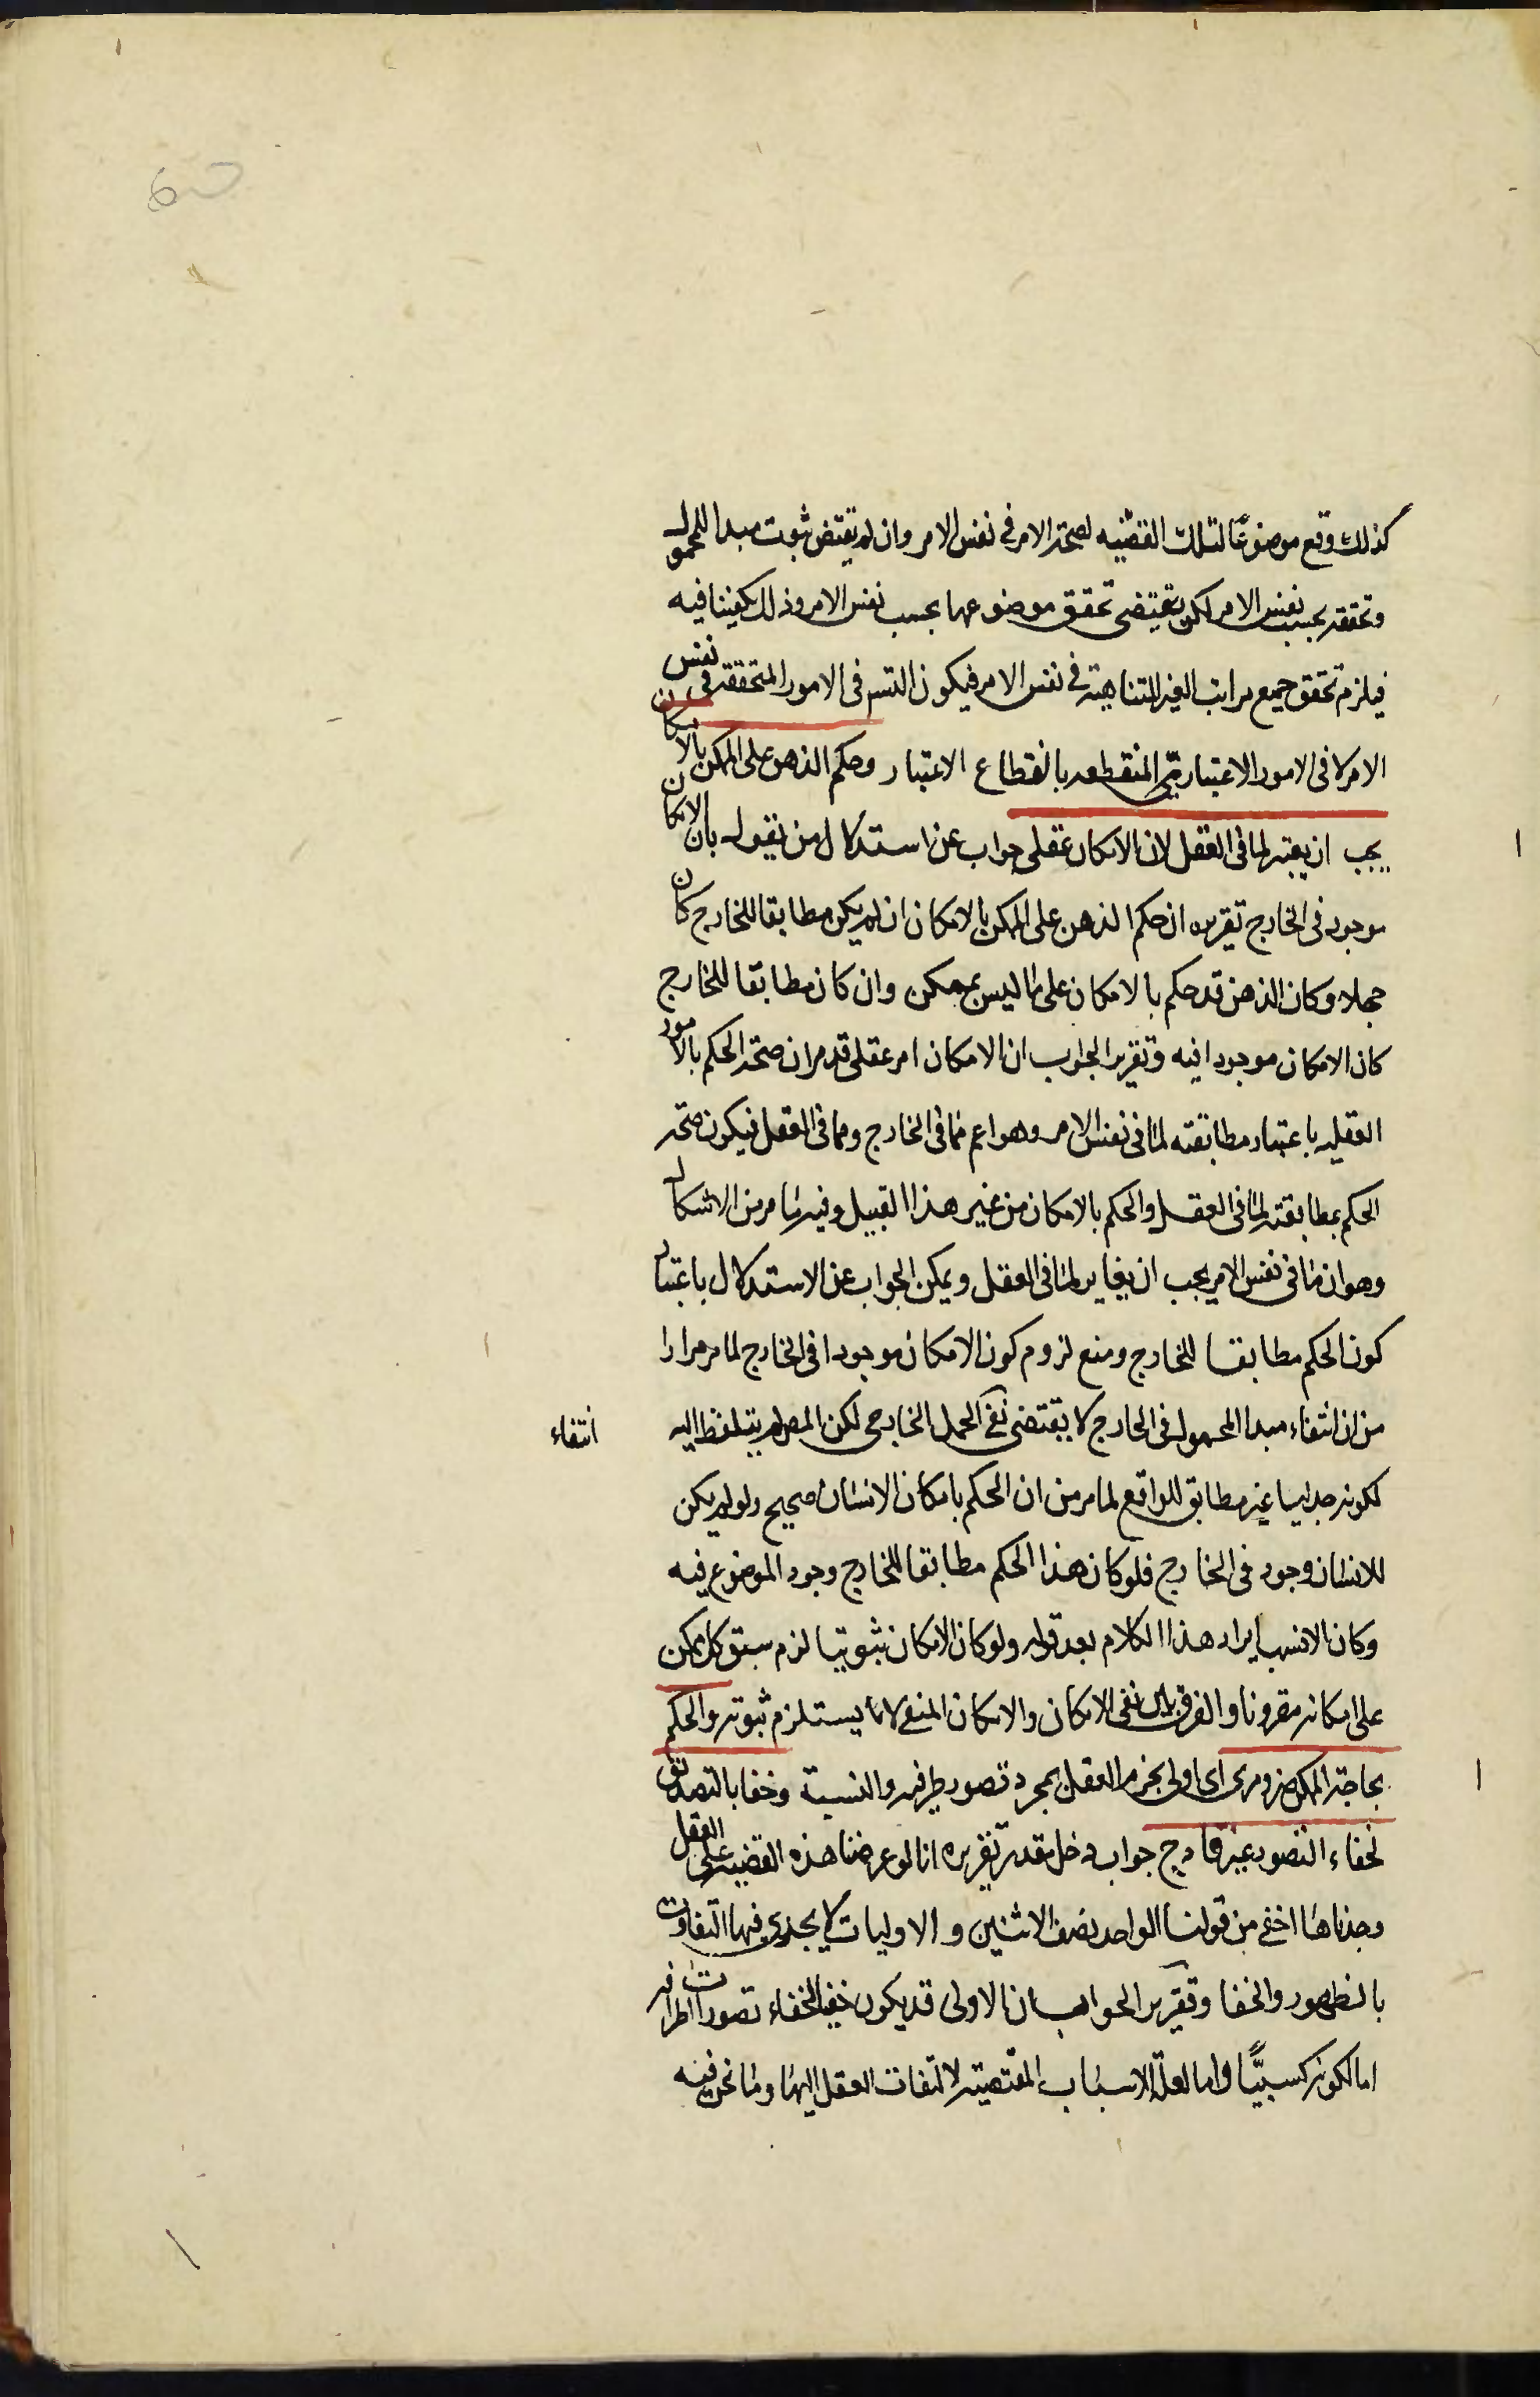 كذلك وقع موضوعا لتلك القضيه لصحة الامر فى نفس الامر وان لم يقتض ثبوت مبدا المحمول
وتحققه بحسب نفس الامر لكن يقتضى تحقق موضوعها بحسب نفس الامر وذلك يكفينا فيه
فيلزم تحقق جميع مراتب الغير المتناهية فى نفس الامر فيكون التسم فى الامور المتحققه فى نفس
الامر لا فى الامور الاعتباريه المنقطعه بانقطاع الاعتبار وحكم الذهن على الممكن بالامكان
يجب ان يعتبر لما فى العقل لان الامكان عقلى جواب عن استدلال من يقول بان الامكان
موجود فى الخارج تقريره ان حكم الذهن على الممكن بالامكان ان لم يكن مطابقا للخارج كان
جهلا وكان الذهن قد حكم بالامكان على ما ليس بممكن وان كان مطابقا للخارج
كان الامكان موجودا فيه وتقرير الجواب ان الامكان امر عقلى قد مر ان صحة الحكم بالامور
العقليه باعتبار مطابقته لما فى نفس الامر وهو اعم مما فى الخارج ومما فى العقل فيكون صحة
الحكم بمطابقته لما فى العقل والحكم بالامكان من غير هذا القبيل وفيه ما مر من الاشكال
وهو ان ما فى نفس الامر يجب ان يغاير لما فى العقل ويمكن الجواب عن الاستدلال باعتبار
كون الحكم مطابقا للخارج ومنع لزوم كون الامكان موجودا فى الخارج لما مر مرارا
من ان انتفاء مبدا المحمول فى الخارج لا يقتضى نفى الحمل الخارجى لكن المص لم يتلفظ اليه
انتفاء
لكونه جدليا غير مطابق للواقع لما مر من ان الحكم بامكان الانسان صحيح ولو لم يكن
للانسان وجود فى الخارج فلو كان هذا الحكم مطابقا للخارج وجود الموضوع فيه
وكان الانسب ايراد هذا الكلام بعد قوله ولو كان الامكان ثبوتيا لزم سبق كل ممكن
على امكانه مقرونا والفرق بين نفى الامكان والامكان المنفى لا يستلزم ثبوته والحكم
بحاجة الممكن ضرورى اى اولى يجزم العقل بمجرد تصور طرفيه والنسبة وخفا بالتصديق
لخفاء التصور غير قادح جواب دخل مقدر تقريره انا لو عرضنا هذه القضيه على العقل
وجدناها اخفى من قولنا الواحد نصف الاثنين والاوليات لا يجرى فيها التفاوت
بالظهور والخفا وتقرير الجواب ان الاولى قد يكون خفيا لخفاء تصورات اطرافه
اما لكونه كسبيًّا واما لعلة الاسباب المقتضيه لالتفات العقل اليها وما نحن فيه